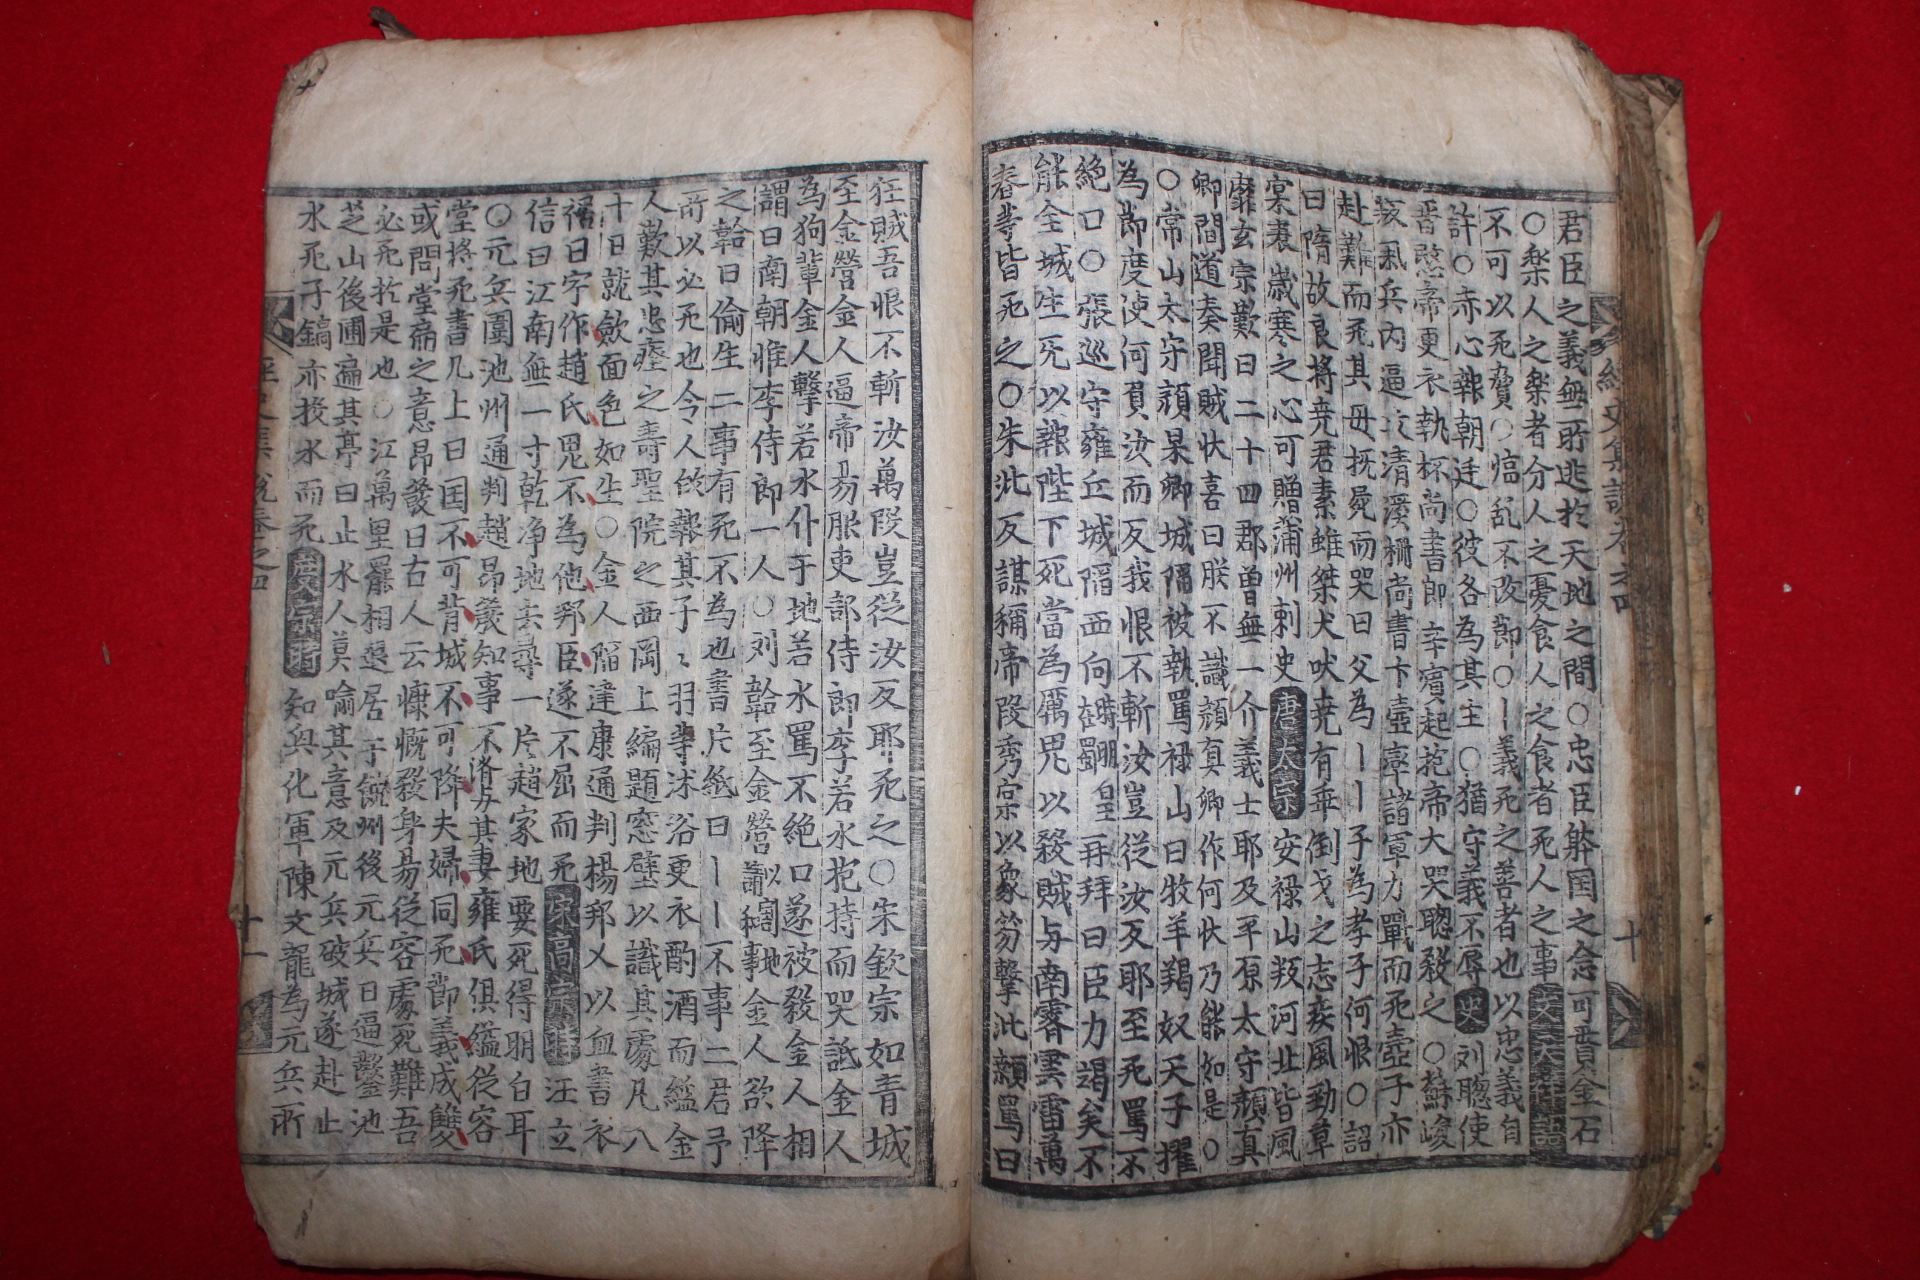 君臣之義無所逃於天地之間○忠臣躰国之念可貫金石
○楽人之楽者分人之憂食人之食者死人之事
不可以死贅○㨪乱不改節○丨義死之善者也以忠義自
許○赤心報朝廷○彼各為其主○猶守義不辱史刘聦使
晋愍帝更衣執杯尚書郎辛賓起抱帝大哭聦殺之○蘇峻
叛乱兵内逼攻清溪柵尚書卞壺率諸軍力戰而死壺子亦
赴難而死其毋抚屍而哭曰父為丨丨子為孝子何恨○詔
曰隋故良将尭君素雖桀犬吠尭有乖倒戈之志疾風勁草
棠衰歳寒之心可贈蒲州刺史唐太宗安禄山叛河北皆風
靡玄宗歎曰二十四郡曽無一介義士耶及平原太守顔真
卿間道奏聞賊状喜曰朕不識顔真卿作何状乃能如是○
○常山太守顔杲卿城陥被執罵禄山曰牧羊羯奴天子擢
為節度使何負汝而反我恨不斬汝豈従汝反耶至死罵不
絶口○張巡守雍丘城陥西向再拜曰臣力竭矣不
能全城生死以報陛下死當為厲鬼以殺賊与南霽雲雷萬
春等皆死之○朱泚反謀稱帝段秀宗以象笏撃泚顔罵曰
狂賊吾恨不斬汝萬段豈従汝反耶死之○宋欽宗如青城
至金營金人逼帝易服吏部侍郎李若水抱持而哭詆金人
為狗輩金人撃若水仆于地若水罵不絶口遂被殺金人相
謂曰南朝惟李侍郎一人○刘韐至金營金人欲降
之韐曰偷生二事有死不為也書片紙曰丨丨不事二君予
所以必死也令人皈報其子沐浴更衣酌酒而縊金
人歎其忠瘞之寿聖院之西岡上編題窓壁以識其處凡八
十日就斂面色如生○金人陥建康通判楊邦乂以血書衣
裾曰字作趙氏鬼不為他邦臣遂不屈而死宋高宗時汪立
信曰江南無一寸乾净地去尋一片趙家地要死得明白耳
○元兵圍池州通判趙昂發知事不済与其妻雍氏倶縊従容
堂将死書几上曰国不可背城不可降夫婦同死節義成雙
或問堂扁之意昂發曰古人云慷慨殺身易従容處死難吾
必死於是也○江萬里罷相退居于饒州後元兵日逼鑿池
芝山後圃遍其亭曰止水人莫喻其意及元兵破城遂赴止
水死子鎬亦投水而死度宗時知興化軍陳文龍為元兵所
経史集説巻之四
十
十一